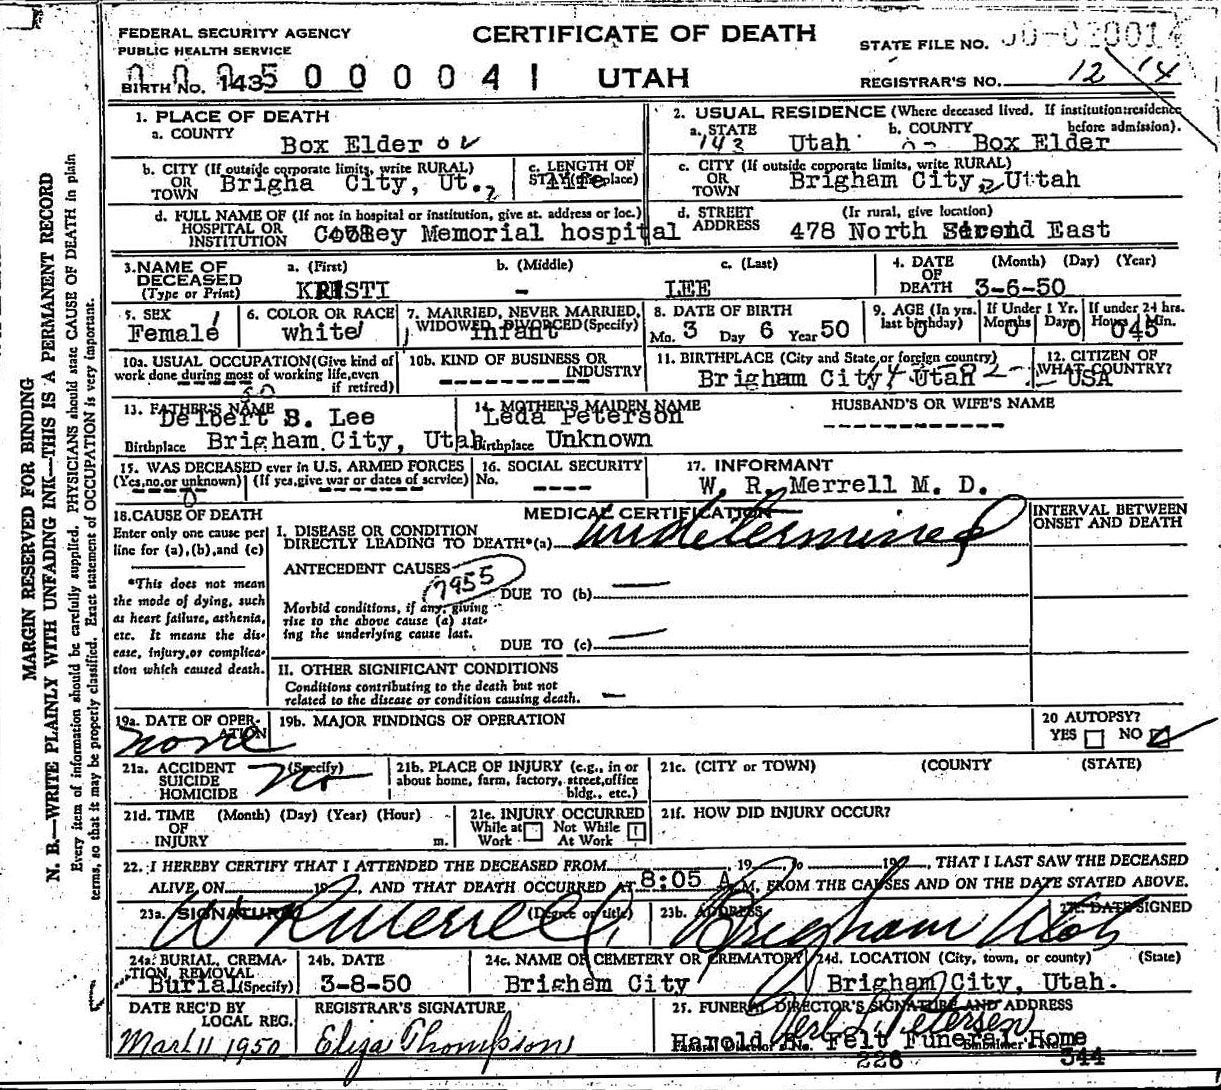 FEDERAL SECURITY AGENCY
PUBLIC HEALTH SERVICE
CERTIFICATE OF DEATH
UTAH
STATE FILE NO.
BIRTH NO. 1435
REGISTRAR'S NO. 12 14
MARGIN RESERVED FOR BINDING
N. B.—WRITE PLAINLY WITH UNFADING INK—THIS IS A PERMANENT RECORD
Every item of information should be carefully supplied. PHYSICIANS should state CAUSE OF DEATH in plain
terms, so that it may be properly classified. Exact statement of OCCUPATION is very important.
1. PLACE OF DEATH
a. COUNTY
Box Elder
2. USUAL RESIDENCE (Where deceased lived. If institution: residence before admission).
a. STATE b. COUNTY
143 Utah Box Elder
b. CITY (If outside corporate limits, write RURAL)
OR
TOWN
Brigha City, Ut.
c. LENGTH OF
STAY (in this place)
c. CITY (If outside corporate limits, write RURAL)
OR
TOWN
Brigham City, Uttah
d. FULL NAME OF (If not in hospital or institution, give st. address or loc.)
HOSPITAL OR
INSTITUTION
Memorial hospital
d. STREET (If rural, give location)
ADDRESS
478 North Second East
3. NAME OF
DECEASED
(Type or Print)
a. (First) b. (Middle) c. (Last)
KRISTI - LEE
4. DATE (Month) (Day) (Year)
OF
DEATH 3-6-50
5. SEX
Female
6. COLOR OR RACE
white
7. MARRIED, NEVER MARRIED,
WIDOWED, DIVORCED (Specify)
infant
8. DATE OF BIRTH
Mo. 3 Day 6 Year 50
9. AGE (In yrs. last birthday)
0
If Under 1 Yr.
Months Days
0 0
If under 24 hrs.
Hours Min.
045
10a. USUAL OCCUPATION (Give kind of
work done during most of working life, even
if retired)
10b. KIND OF BUSINESS OR
INDUSTRY
11. BIRTHPLACE (City and State, or foreign country)
Brigham City, Utah
12. CITIZEN OF
WHAT COUNTRY?
USA
13. FATHER'S NAME
Delbert B. Lee
Birthplace Brigham City, Utah
14. MOTHER'S MAIDEN NAME
Leda Peterson
Birthplace Unknown
HUSBAND'S OR WIFE'S NAME
15. WAS DECEASED ever in U.S. ARMED FORCES
(Yes, no, or unknown) (If yes, give war or dates of service)
16. SOCIAL SECURITY
No.
17. INFORMANT
W. R. Merrell M. D.
18. CAUSE OF DEATH
Enter only one cause per
line for (a), (b), and (c)
*This does not mean
the mode of dying, such
as heart failure, asthenia,
etc. It means the dis-
ease, injury, or complica-
tion which caused death.
MEDICAL CERTIFICATION
INTERVAL BETWEEN
ONSET AND DEATH
I. DISEASE OR CONDITION
DIRECTLY LEADING TO DEATH*(a) Undetermined
ANTECEDENT CAUSES
7955
DUE TO (b) —
Morbid conditions, if any, giving
rise to the above cause (a) stat-
ing the underlying cause last.
DUE TO (c) —
II. OTHER SIGNIFICANT CONDITIONS
Conditions contributing to the death but not
related to the disease or condition causing death. —
19a. DATE OF OPER-
ATION
none
19b. MAJOR FINDINGS OF OPERATION
20 AUTOPSY?
YES NO
21a. ACCIDENT (Specify)
SUICIDE
HOMICIDE
no
21b. PLACE OF INJURY (e.g., in or
about home, farm, factory, street, office
bldg., etc.)
21c. (CITY or TOWN) (COUNTY) (STATE)
21d. TIME (Month) (Day) (Year) (Hour)
OF
INJURY m.
21e. INJURY OCCURRED
While at Work Not While At Work
21f. HOW DID INJURY OCCUR?
22. I HEREBY CERTIFY THAT I ATTENDED THE DECEASED FROM 19 to 19 , THAT I LAST SAW THE DECEASED
ALIVE ON 19 , AND THAT DEATH OCCURRED AT 8:05 A M, FROM THE CAUSES AND ON THE DATE STATED ABOVE.
23a. SIGNATURE (Degree or title)
W R Merrell
23b. ADDRESS
Brigham Utah
23c. DATE SIGNED
24a. BURIAL, CREMA-
TION, REMOVAL
(Specify)
Burial
24b. DATE
3-8-50
24c. NAME OF CEMETERY OR CREMATORY
Brigham City
24d. LOCATION (City, town, or county) (State)
Brigham City, Utah.
DATE REC'D BY
LOCAL REG.
March 11 1950
REGISTRAR'S SIGNATURE
Eliza Thompson
25. FUNERAL DIRECTOR'S SIGNATURE AND ADDRESS
Harold B. Felt Funeral Home
226 344